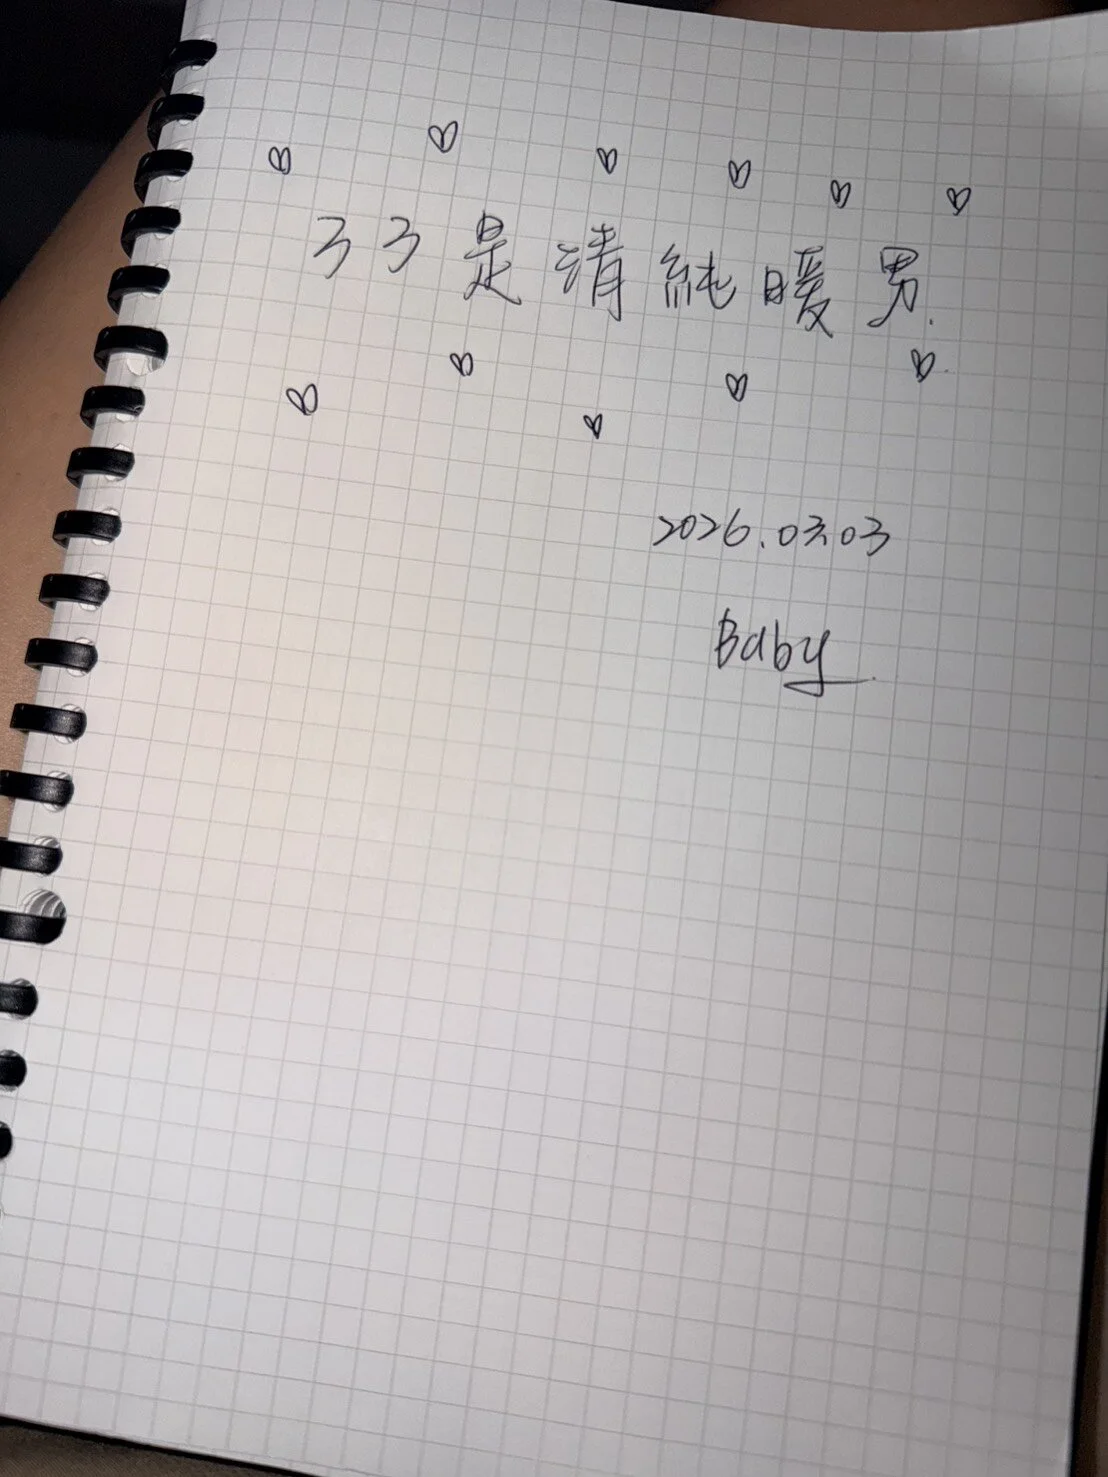 33是清純暖男.
2026.03.03
Baby